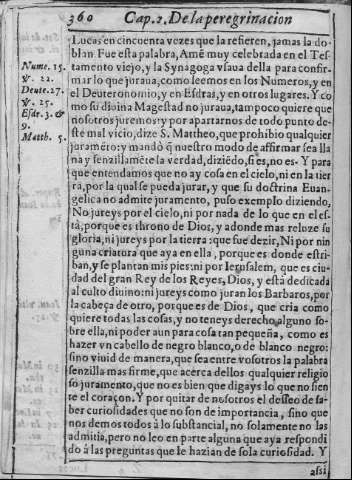 360 Cap. 2. De la peregrinacion
Lucas en cincuenta vezes que la refieren, jamas la do-
blan Fue esta palabra, Amē muy celebrada en el Tes-
Nume. 15. tamento viejo, y la Synagoga vsaua della para confir-
&. 22. mar lo que juraua, como leemos en los Numeros, y en
Deute. 27. el Deuteronomio, y en Esdras, y en otros lugares. Y co
&. 25. mo su diuina Magestad no juraua, tampoco quiere que
Esdr. 3. & nosotros juremos: y por apartarnos de todo punto de-
9. ste mal vicio, dize S. Mattheo, que prohibio qualquier
Matth. 5. juramēto: y mandò q̄ nuestro modo de affirmar sea lla
na y senzillamēte la verdad, diziēdo, si es, no es. Y para
que entendamos que no ay cosa en el cielo, ni en la tie
rra, por la qual se pueda jurar, y que su doctrina Euan-
gelica no admite juramento, puso exemplo diziendo,
No jureys por el cielo, ni por nada de lo que en el es-
tà, porque es throno de Dios, y adonde mas reluze su
gloria, ni jureys por la tierra: que fue dezir, Ni por nin
guna criatura que aya en ella, porque es donde estri-
ban, y se plantan mis pies: ni por Ierusalem, que es ciu-
dad del gran Rey de los Reyes, Dios, y està dedicada
al culto diuino: ni jureys como juran los Barbaros, por
la cabeça de otro, porque es de Dios, que cria como
quiere todas las cosas, y no teneys derecho alguno so-
bre ella, ni poder aun para cosa tan pequeña, como es
hazer vn cabello de negro blanco, o de blanco negro:
sino viuid de manera, que sea entre vosotros la palabra
senzilla mas firme, que acerca dellos qualquier religio
so juramento, que no es bien que digays lo que no sien
te el coraçon. Y por quitar de nosotros el desseo de sa-
ber curiosidades que no son de importancia, sino que
nos demos todos à lo substancial, no solamente no las
admitia, pero no leo en parte alguna que aya respondi
do à las preguntas que le hazian de sola curiosidad. Y
assi